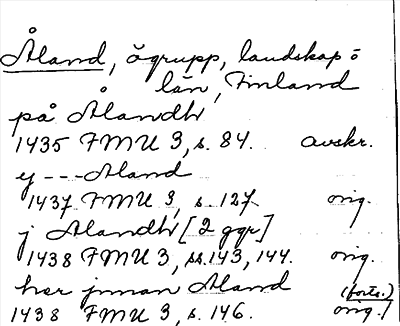 Åland, ögrupp, landskap o
län, Finland
på Alandh
1435 FMU 3, s. 84. avskr.
ey --- Aland
1437 FMU 3, s. 127. orig.
j Alandh [2 ggr]
1438 FMU 3, ss. 143, 144. orig.
her jnnan Aland
(forts.)
1438 FMU 3, s. 146. orig.